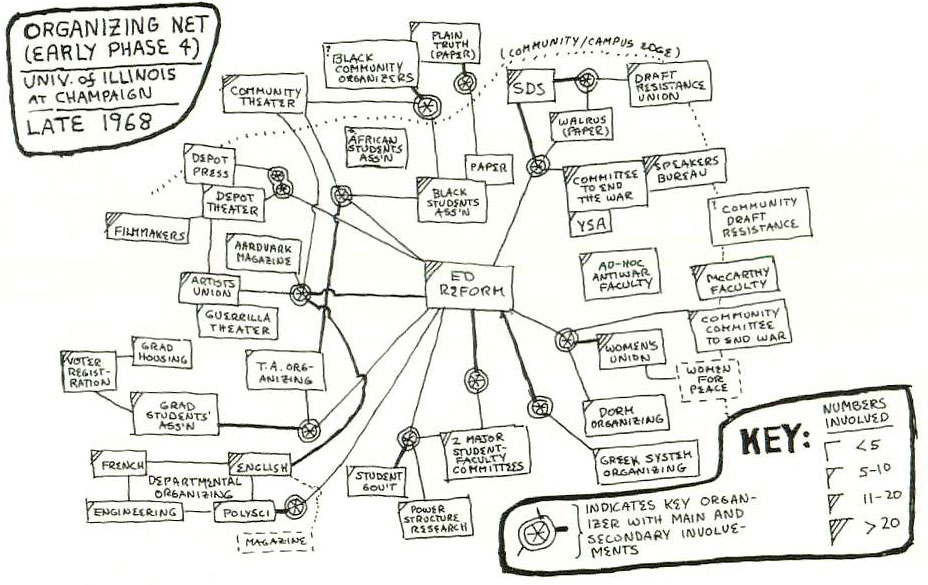 ORGANIZING NET
(EARLY PHASE 4)
UNIV. of ILLINOIS
AT CHAMPAIGN
LATE 1968
(COMMUNITY/CAMPUS EDGE)
PLAIN
TRUTH
(PAPER)
?
BLACK
COMMUNITY
ORGANIZERS
COMMUNITY
THEATER
SDS
DRAFT
RESISTANCE
UNION
WALRUS
(PAPER)
AFRICAN
STUDENTS
ASS'N
PAPER
BLACK
STUDENTS
ASS'N
COMMITTEE
TO END
THE WAR
YSA
SPEAKERS
BUREAU
?
COMMUNITY
DRAFT
RESISTANCE
DEPOT
PRESS
DEPOT
THEATER
FILMMAKERS
AARDVARK
MAGAZINE
ARTISTS
UNION
GUERRILLA
THEATER
ED
REFORM
AD-HOC
ANTIWAR
FACULTY
McCARTHY
FACULTY
COMMUNITY
COMMITTEE
TO END WAR
WOMEN'S
UNION
WOMEN
FOR
PEACE
GRAD
HOUSING
VOTER
REGIST-
RATION
T.A. ORG-
ANIZING
GRAD
STUDENTS'
ASS'N
DORM
ORGANIZING
GREEK SYSTEM
ORGANIZING
2 MAJOR
STUDENT-
FACULTY
COMMITTEES
STUDENT
GOV'T
POWER
STRUCTURE
RESEARCH
FRENCH
ENGLISH
DEPARTMENTAL
ORGANIZING
ENGINEERING
POLYSCI
MAGAZINE
KEY:
NUMBERS
INVOLVED
<5
5-10
11-20
>20
INDICATES KEY ORGAN-
IZER WITH MAIN AND
SECONDARY INVOLVE-
MENTS